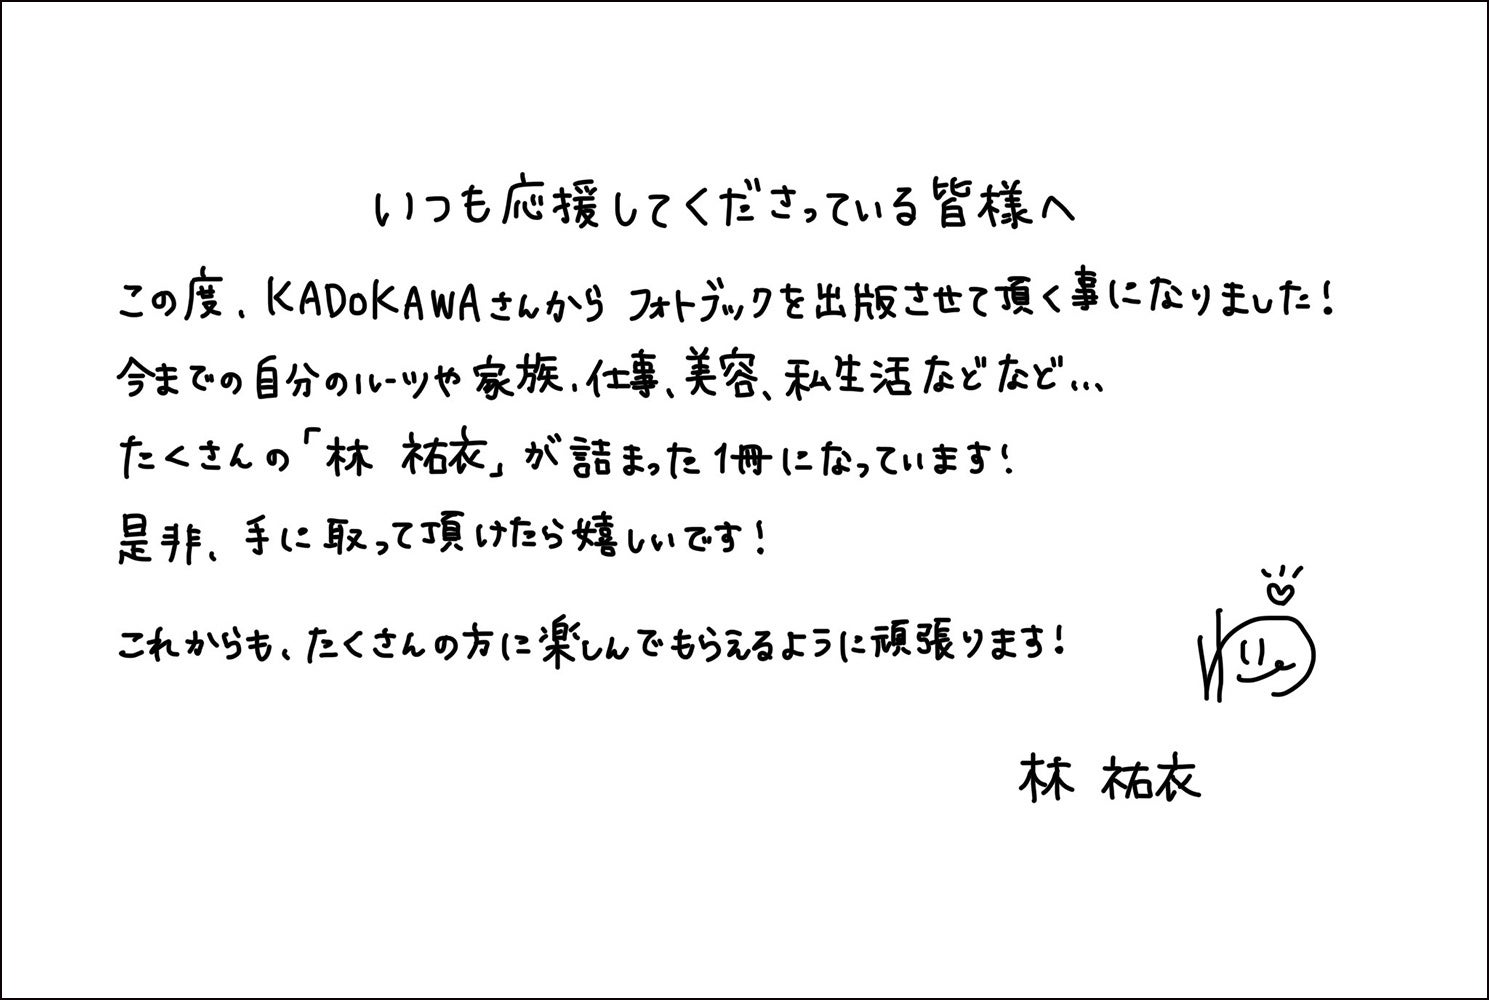 いつも応援してくださっている皆様へ
この度、KADOKAWAさんからフォトブックを出版させて頂く事になりました!
今までの自分のルーツや家族、仕事、美容、私生活などなど...
たくさんの「林 祐衣」が詰まった1冊になっています!
是非、手に取って頂けたら嬉しいです!
これからも、たくさんの方に楽しんでもらえるように頑張ります!
林 祐衣